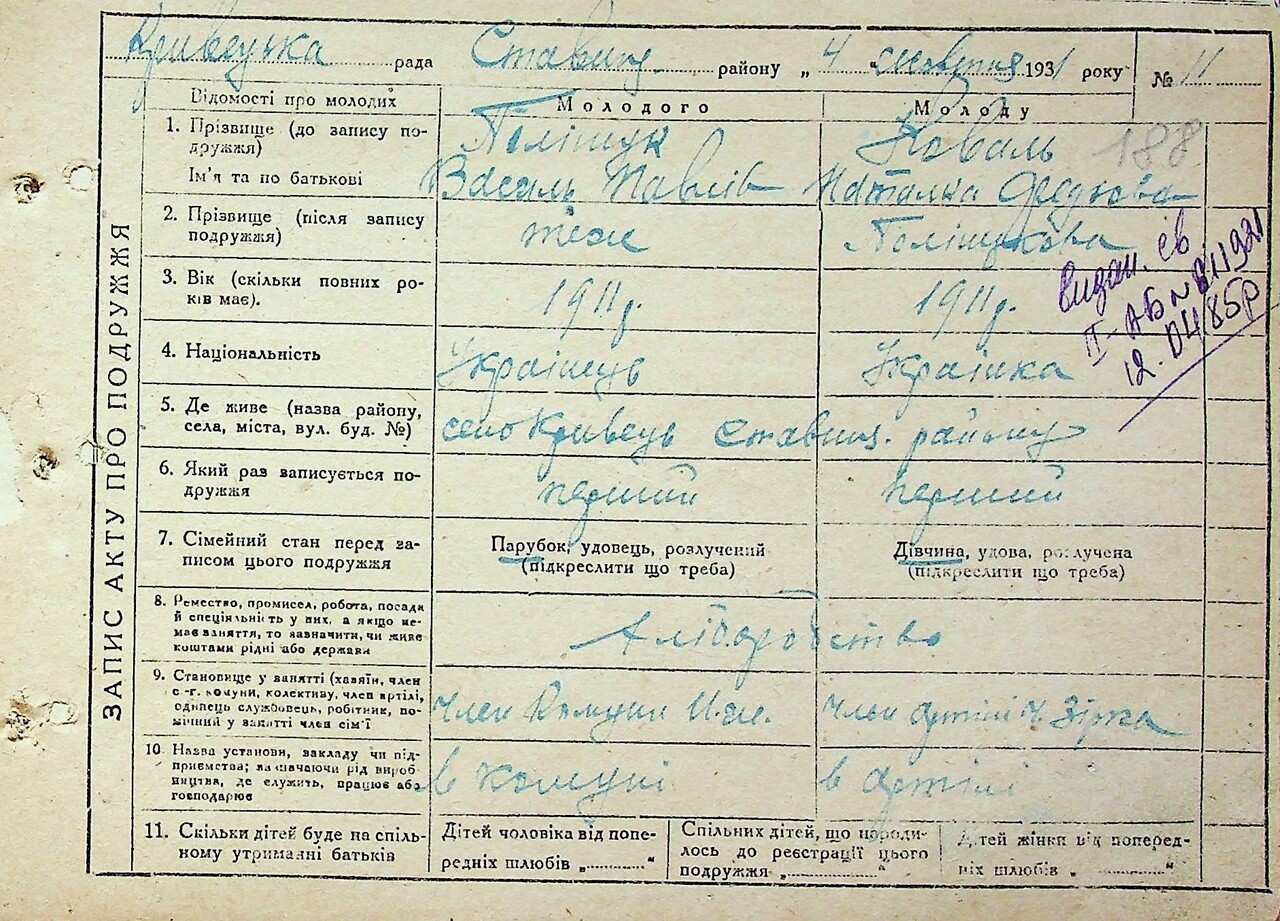 Кривецька рада Ставищ. району „4" жовтня 1931 року № 11
Відомості про молодих
Молодого
Молоду
1. Прізвище (до запису по-
дружжя)
Поліщук
Коваль
188
Ім'я та по батькові
Василь Павлів
Наталка
2. Прізвище (після запису
подружжя)
теж
Поліщукова
видан. св
II-АБ №
12.04.85р
3. Вік (скільки повних ро-
ків має).
1911р.
1911р.
4. Національність
Українець
Українка
5. Де живе (назва району,
села, міста, вул. буд. №)
село Кривець Ставищ. району
6. Який раз записується по-
дружжя
перший
перший
7. Сімейний стан перед за-
писом цього подружжя
Парубок, удовець, розлучений
(підкреслити що треба)
Дівчина, удова, розлучена
(підкреслити що треба)
8. Ремество, промисел, робота, посада
й спеціяльність у них, а якщо не-
має заняття, то зазначити, чи живе
коштами рідні або держави
хліборобство
9. Становище у занятті (хазяїн, член
с.-г. комуни, колективу, член артілі,
одинець службовець, робітник, по-
мічний у занятті член сім'ї
член Комуни
член артілі Ч. Зірка
10. Назва установи, закладу чи під-
приємства; зазначаючи рід вироб-
ництва, де служить, працює або
господарює
в комуні
в артілі
11. Скільки дітей буде на спіль-
ному утриманні батьків
Дітей чоловіка від попе-
редніх шлюбів „ "
Спільних дітей, що народи-
лось до реєстрації цього
подружжя „ "
Дітей жінки від поперед-
ніх шлюбів „ "
ЗАПИС АКТУ ПРО ПОДРУЖЖЯ